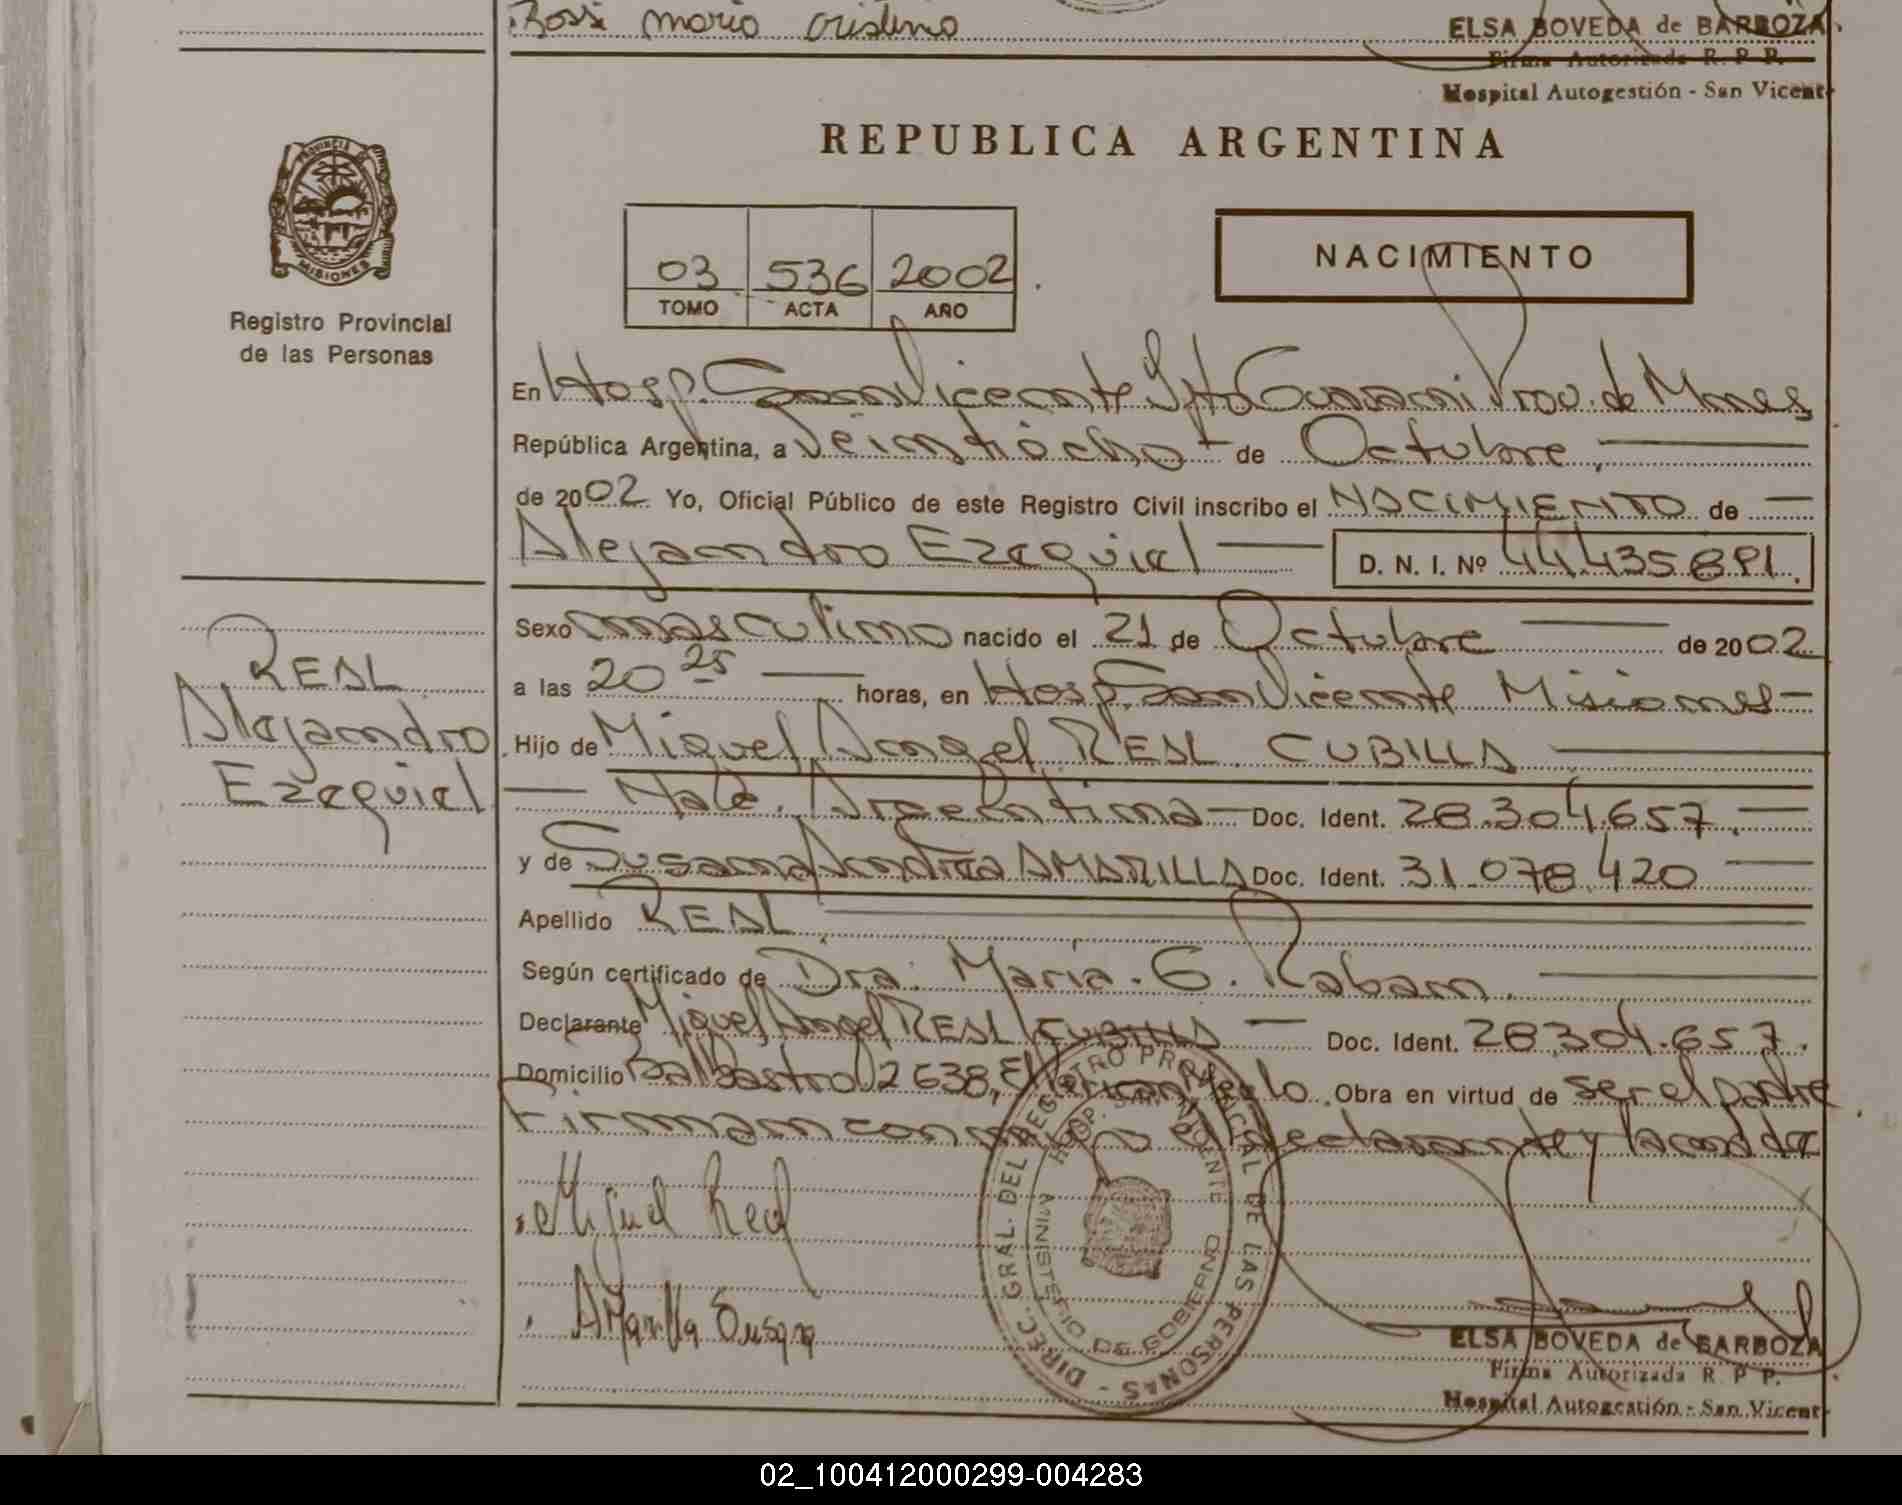 Rossi mario cristino
ELSA BOVEDA de BARBOZA
Firma Autorizada R. P. P.
Hospital Autogestión - San Vicent
REPUBLICA ARGENTINA
PROVINCIA DE
MISIONES
Registro Provincial
de las Personas
03 536 2002
TOMO ACTA AÑO
NACIMIENTO
En Hosp. San Vicente Dpto Guarani Prov. de Mnes
República Argentina, a Veintiocho de Octubre
de 2002 Yo, Oficial Público de este Registro Civil inscribo el NACIMIENTO de
Alejandro Ezequiel D. N. I. Nº 44.435.891.
REAL
Alejandro
Ezequiel
Sexo masculino nacido el 21 de Octubre de 2002
a las 20 25 horas, en Hosp. San Vicente Misiones
Hijo de Miguel Angel REAL CUBILLA
Nac. Argentina Doc. Ident. 28.304.657.
y de Susana Andrea AMARILLA Doc. Ident. 31.078.420
Apellido REAL
Según certificado de Dra. Maria. G. Raban.
Declarante Miguel Angel REAL CUBILLA Doc. Ident. 28.304.657.
Domicilio Balbastro 2638, Obra en virtud de ser el padre
Firman conmigo el declarante y la madre
Miguel Real
Amarilla Susana
DIREC. GRAL. DEL REGISTRO PROVINCIAL DE LAS PERSONAS
HOSP. SAN VICENTE
MINISTERIO DE GOBIERNO
ELSA BOVEDA de BARBOZA
Firma Autorizada R. P. P.
Hospital Autogestión - San Vicent
02_100412000299-004283